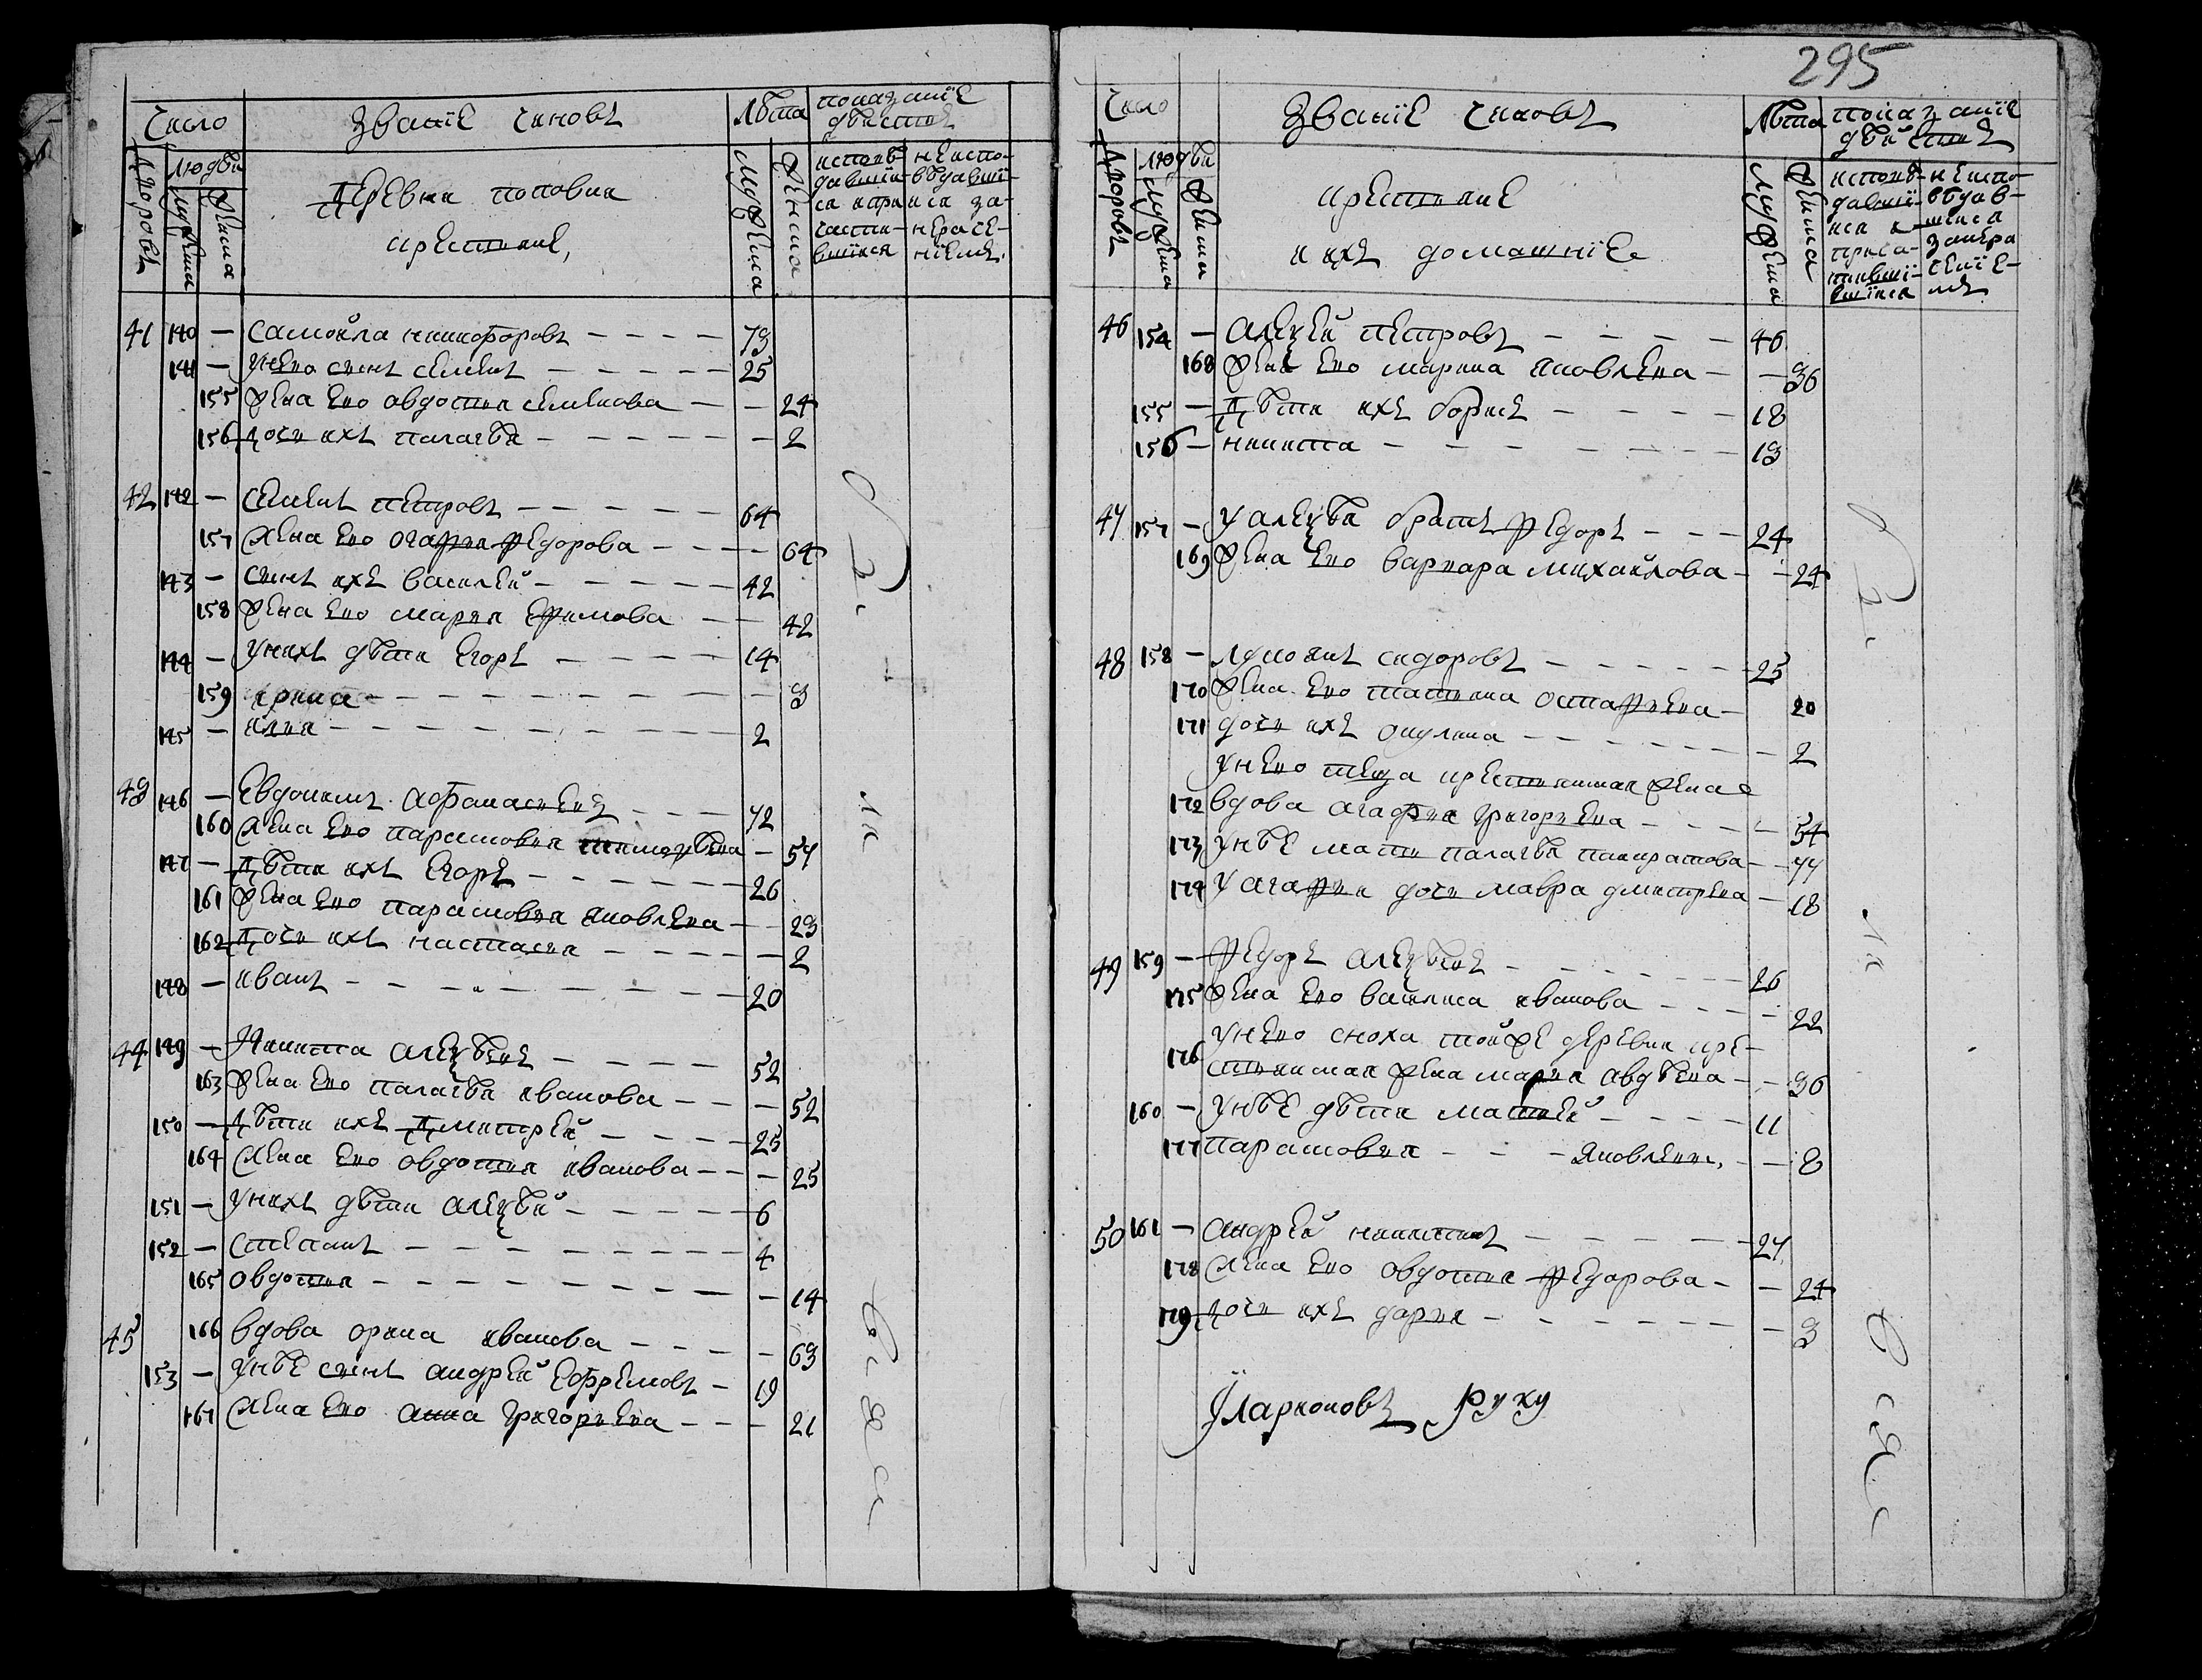 число званїе чиновъ лѣта показанїе дѣйств
дворовъ людѣй мужеска женска
деревня поповка
крестьяне,
мужеска женска
исповѣдавшихся и причастившихся
неисповѣдавшихся за нерачениемъ.
41 140 — самойла никифоровъ — 73
141 — у него сынъ семенъ — 25
155 жена ево овдотья семенова — 24
156 дочь ихъ палагѣя — 2
42 142 — семенъ петровъ — 64
157 жена ево огафья федорова — 64
143 — сынъ ихъ василей — 42
158 жена ево марья ефимова — 42
144 — у нихъ дѣти егоръ — 14
159 ирина — 3
145 — илья — 2
43 146 — евдокимъ афонасьевъ — 72
160 жена ево парасковья — 57
147 — дѣти ихъ егоръ — 26
161 жена ево парасковья яковлева — 23
162 дочь ихъ настасья — 2
148 — иванъ — 20
44 149 — никита алеѯѣевъ — 52
163 жена ево палагѣя иванова — 52
150 — дѣти ихъ дмитрей — 25
164 жена ево овдотья иванова — 25
151 — у нихъ дѣти алеѯѣй — 6
152 — степанъ — 4
165 овдотья — 14
45 166 вдова орина иванова — 63
153 — у нѣе сынъ андрей ефремовъ — 19
167 жена ево анна григорьева — 21
295
число званїе чиновъ лѣта показанїе дѣйств
дворовъ людѣй мужеска женска
крестьяне
и ихъ домашнїе
мужеска женска
46 154 — алеѯей петровъ — 46
168 жена ево марина яковлева — 36
155 — дѣти ихъ борисъ — 18
156 — никита — 13
47 157 — у алеѯѣя братъ федоръ — 24
169 жена ево варвара михайлова — 24
48 158 — лукоянъ сидоровъ — 25
170 жена ево татьяна остафьева — 20
171 дочь ихъ окулина — 2
у него теща крестьянская жена
172 вдова агафья григорьева — 54
173 у нѣе мать палагѣя панкратова — 77
174 у агафьи дочь мавра дмитрева — 18
49 159 — федоръ алеѯѣевъ — 26
175 жена ево василиса иванова — 22
у него сноха той же деревни кре-
176 стьянская жена марья авдѣева — 36
160 — у нѣе дѣти матвей — 11
177 парасковья — яковлевы, — 8
50 161 — андрей никитинъ — 27
178 жена ево овдотья федорова — 24
179 дочь ихъ дарья — 3
Иларионовъ руку